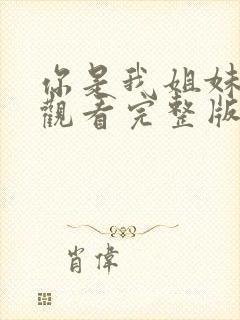 你是我姐妹
觀看完整版
肖偉